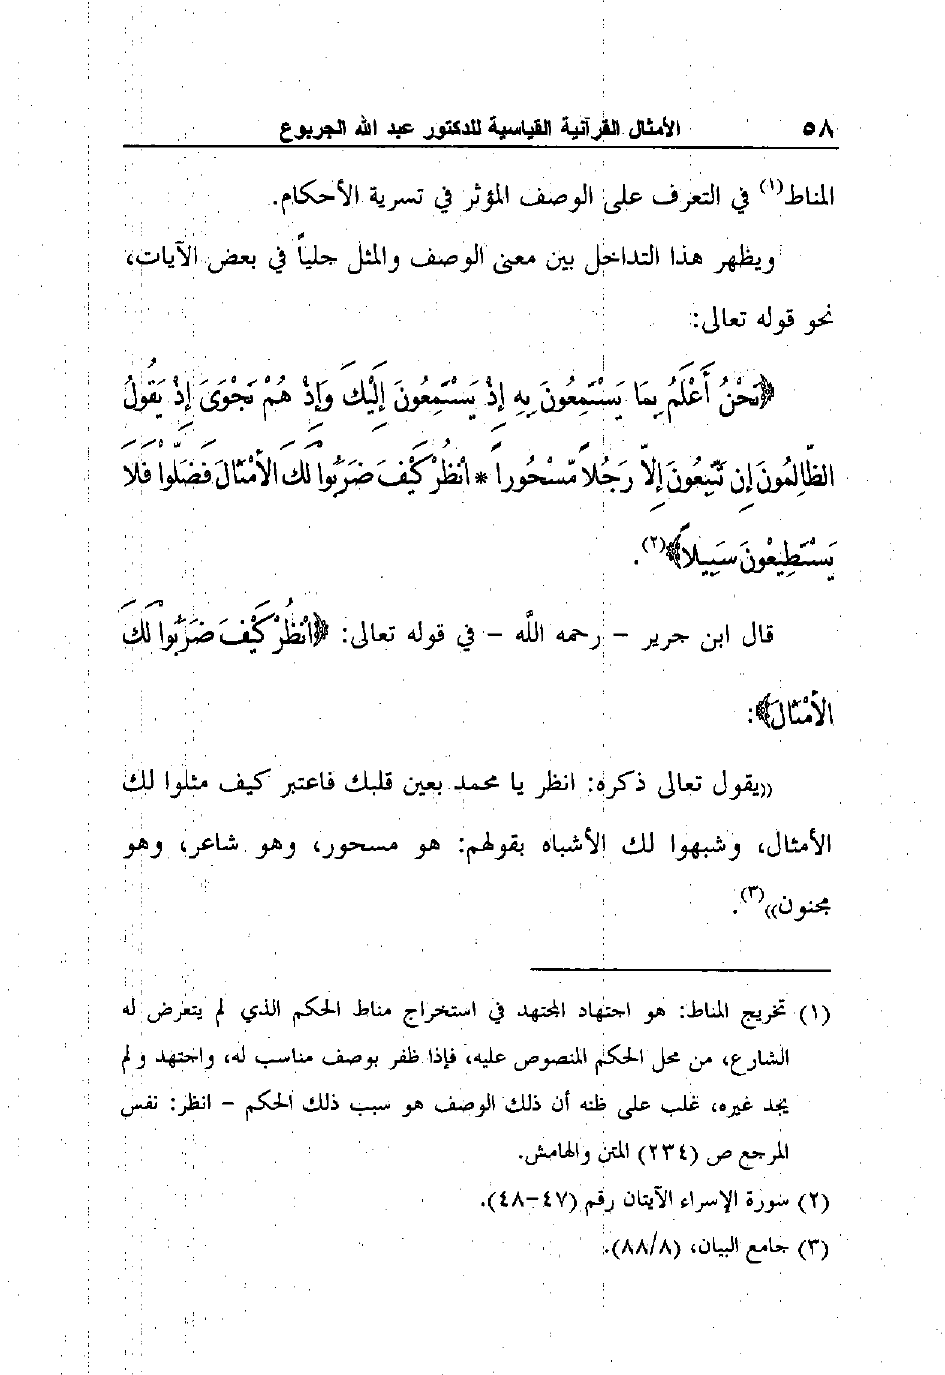 ٥٨ الأمثال القرآنية القياسية للدكتور عبد الله الجربوع
المناط(١) في التعرف على الوصف المؤثر في تسرية الأحكام.
ويظهر هذا التداخل بين معنى الوصف والمثل جلياً في بعض الآيات،
نحو قوله تعالى:
﴿نَحْنُ أَعْلَمُ بِمَا يَسْتَمِعُونَ بِهِ إِذْ يَسْتَمِعُونَ إِلَيْكَ وَإِذْ هُمْ نَجْوَىَ إِذْ يَقُولُ
الظَّالِمُونَ إِن تَتَّبِعُونَ إِلاَّ رَجُلاً مَّسْحُوراً * انْظُرْ كَيْفَ ضَرَبُوا لَكَ الأَمْثَالَ فَضَلُّوا فَلاَ
يَسْتَطِيعْونَ سَبِيلاً﴾(٢).
قال ابن جرير – رحمه اللَّه – في قوله تعالى: ﴿انْظُرْ كَيْفَ ضَرَبُوا لَكَ
الأَمْثَالَ﴾:
((يقول تعالى ذكره: انظر يا محمد بعين قلبك فاعتبر كيف مثلوا لك
الأمثال، وشبهوا لك الأشباه بقولهم: هو مسحور، وهو شاعر، وهو
مجنون))(٣).
(١) تخريج المناط: هو اجتهاد المجتهد في استخراج مناط الحكم الذي لم يتعرض له
الشارع، من محل الحكم المنصوص عليه، فإذا ظفر بوصف مناسب له، واجتهد ولم
يجد غيره، غلب على ظنه أن ذلك الوصف هو سبب ذلك الحكم – انظر: نفس
المرجع ص (٢٣٤) المتن والهامش.
(٢) سورة الإسراء الآيتان رقم (٤٧–٤٨).
(٣) جامع البيان، (٨٨/٨).